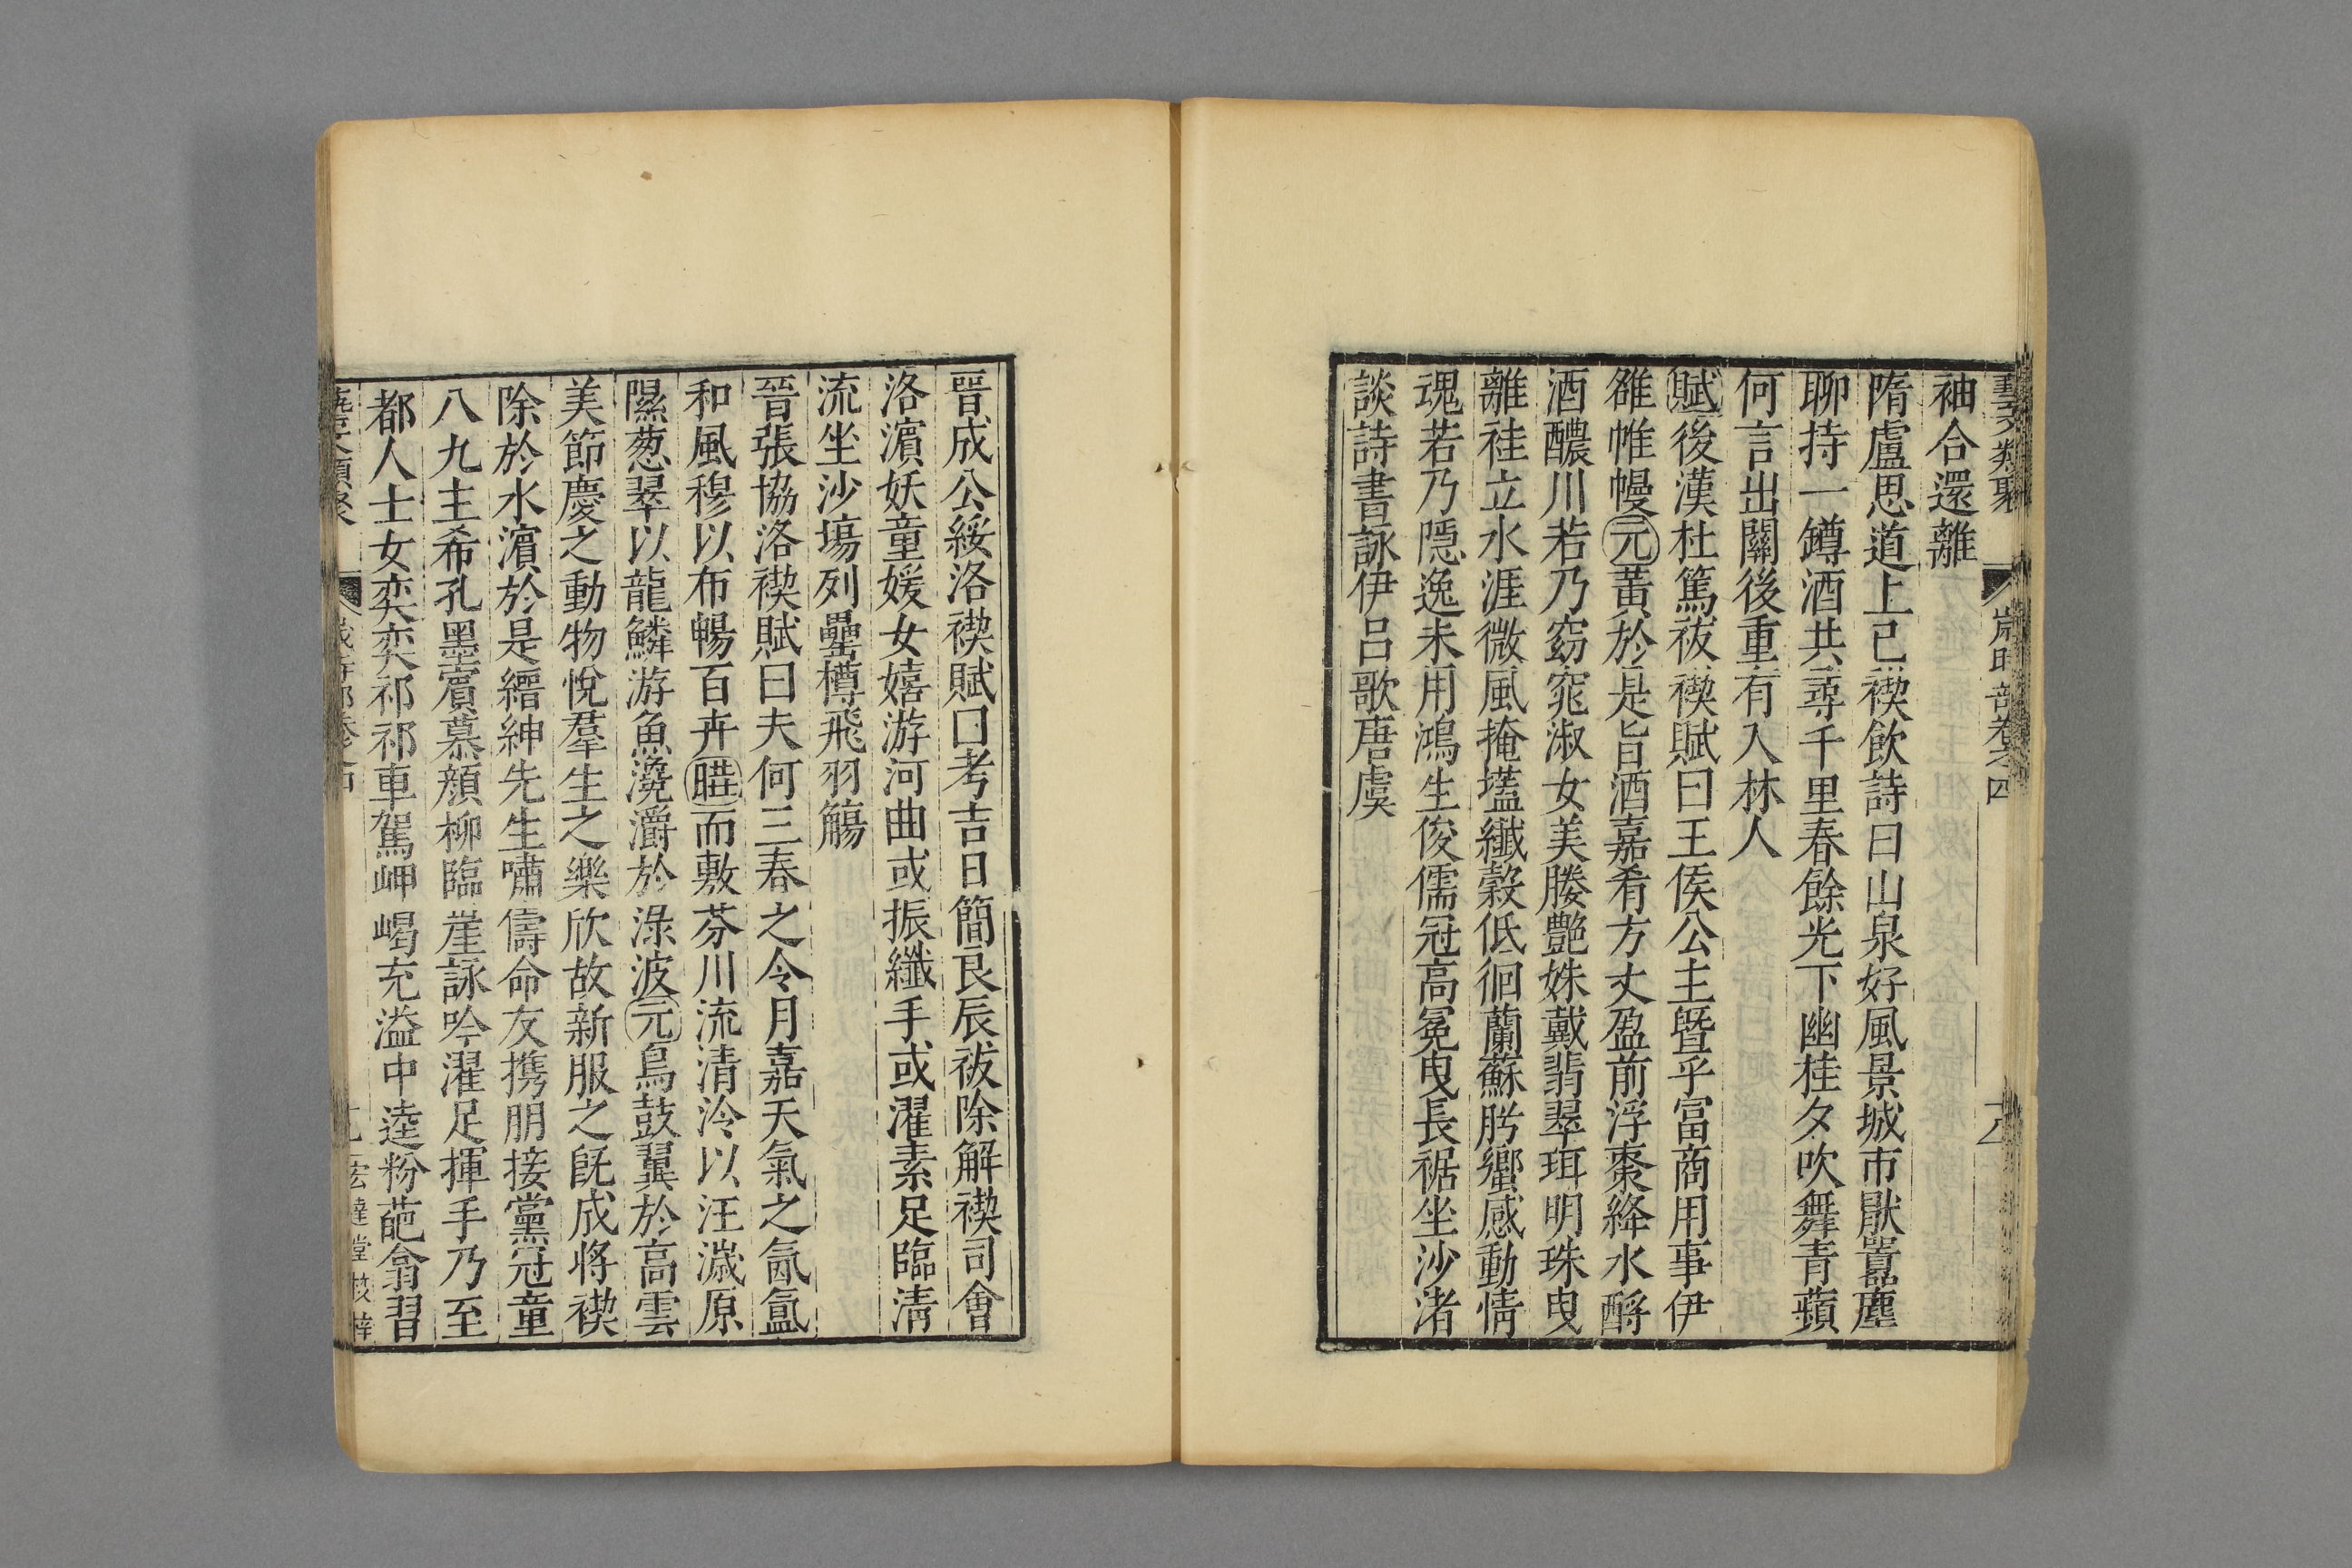 藝文類聚 歲時部卷之四
袖合還離
隋盧思道上巳禊飲詩曰山泉好風景城市厭囂塵
聊持一鐏酒共尋千里春餘光下幽桂夕吹舞青蘋
何言出關後重有入林人
賦後漢杜篤祓禊賦曰王侯公主暨乎富商用事伊
雒帷幔元黃於是旨酒嘉肴方丈盈前浮棗絳水酹
酒醲川若乃窈窕淑女美媵艷姝戴翡翠珥明珠曳
離袿立水涯微風掩壒纖縠低徊蘭蘇肹蠁感動情
魂若乃隱逸未用鴻生俊儒冠高冕曳長裾坐沙渚
談詩書詠伊呂歌唐虞
晉成公綏洛禊賦曰考吉日簡良辰祓除解禊司會
洛濵妖童媛女嬉游河曲或振纖手或濯素足臨清
流坐沙塲列罍樽飛羽觴
晉張協洛禊賦曰夫何三春之令月嘉天氣之氤氳
和風穆以布暢百卉曄而敷芬川流清泠以汪濊原
隰葱翠以龍鱗游魚瀺灂於淥波元鳥鼓翼於高雲
美節慶之動物悅羣生之樂欣故新服之旣成將禊
除於水濵於是縉紳先生嘯儔命友携朋接黨冠童
八九主希孔墨賔慕顏柳臨崖詠吟濯足揮手乃至
都人士女奕奕祁祁車駕岬嵑充溢中逵粉葩翕習
藝文類聚 歲時部卷之四 宏達堂校梓